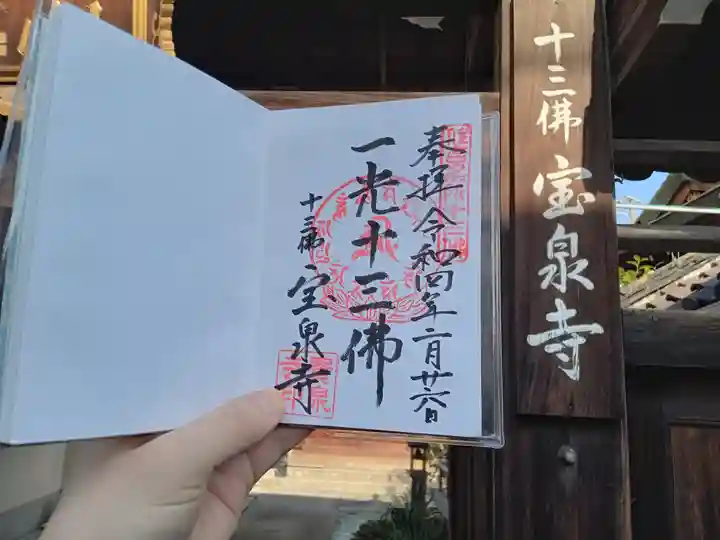 十三佛 宝泉寺
奉拝 令和四年二月廿六日
一光十三佛
十三佛 宝泉寺